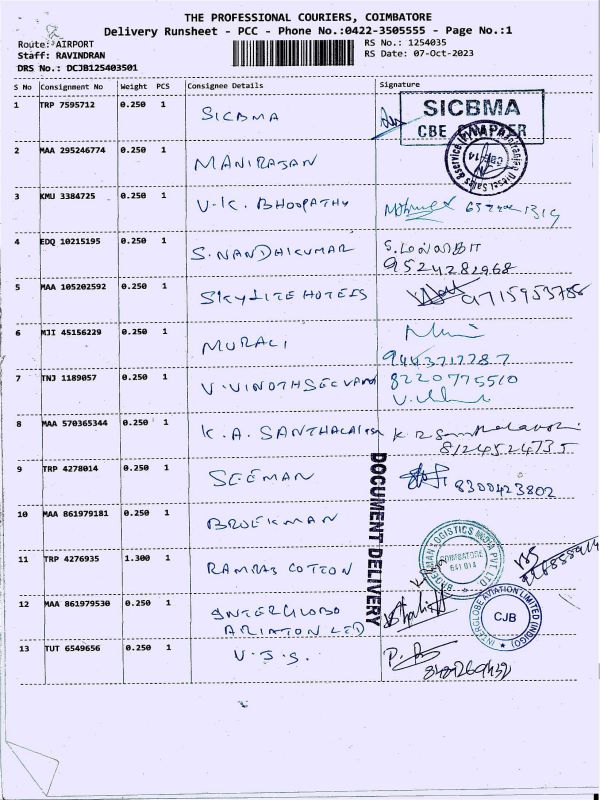 THE PROFESSIONAL COURIERS, COIMBATORE
Delivery Runsheet - PCC - Phone No.:0422-3505555 - Page No.:1
Route: AIRPORT RS No.: 1254035
Staff: RAVINDRAN RS Date: 07-Oct-2023
DRS No.: DCJB125403501
S No Consignment No Weight PCS Consignee Details Signature
1 TRP 7595712 0.250 1 SICBMA
SICBMA
CBE CHAPTER
2 MAA 295246774 0.250 1 MANIRAJAN
3 KMU 3384725 0.250 1 V.K. BHOOPATHY
4 EDQ 10215195 0.250 1 S.NANDHIKUMAR
9524282968
5 MAA 105202592 0.250 1 SKYLITE HOTELS 9715953786
6 MJI 45156229 0.250 1 MURALI
9443717787
7 TNJ 1189057 0.250 1 V.VINOTHSELVAM 8220775510
8 MAA 570365344 0.250 1 K.A. SANTHALAI
8124524735
9 TRP 4278014 0.250 1 SEEMAN 8300423802
DOCUMENT DELIVERY
10 MAA 861979181 0.250 1 BROEKMAN
COIMBATORE
641 014
11 TRP 4276935 1.300 1 RAMRAJ COTTON
12 MAA 861979530 0.250 1 INTERGLOBO
ARIATON LTD
INTERGLOBE AVIATION LIMITED (INDIGO)
CJB
13 TUT 6549656 0.250 1 V.J.S.